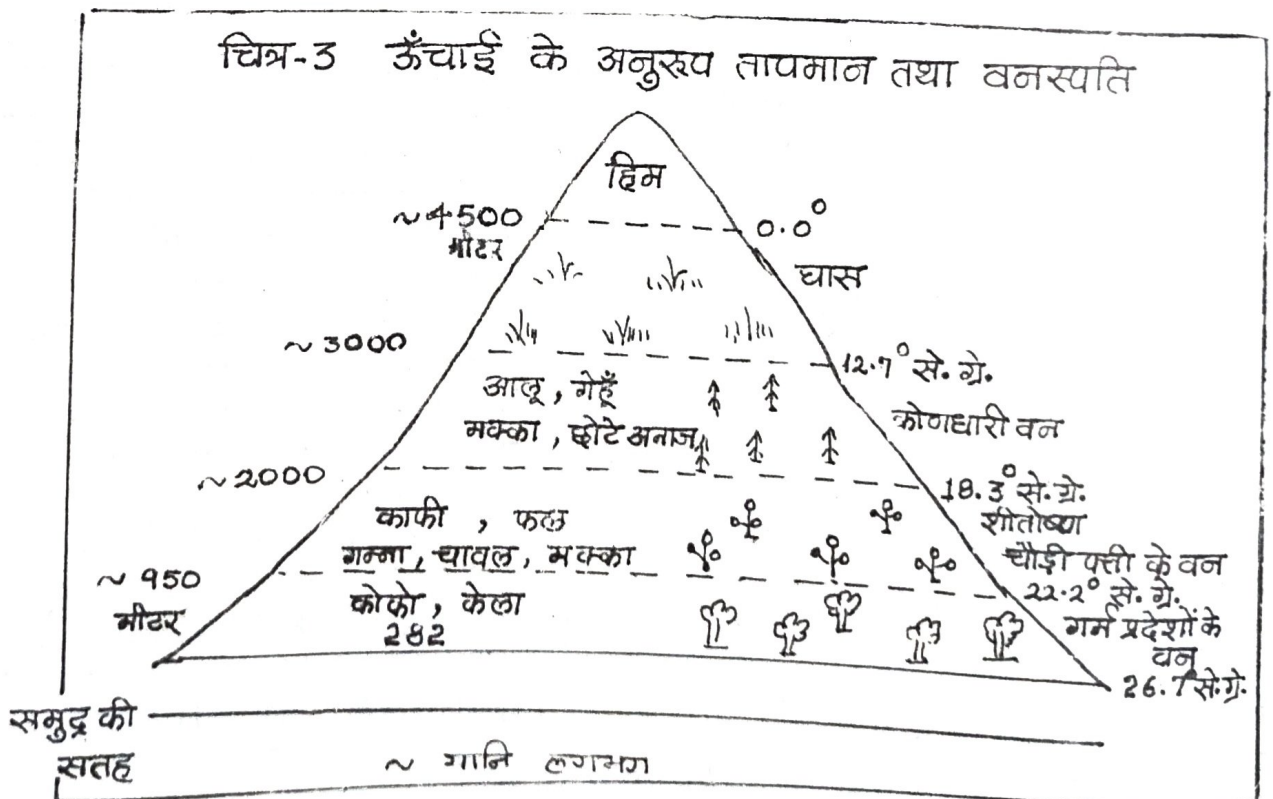 चित्र-3 ऊँचाई के अनुरूप तापमान तथा वनस्पति
हिम
~4500
मीटर
0.0°
घास
~3000
12.7° से. ग्रे.
आलू, गेहूँ
मक्का, छोटे अनाज
कोणधारी वन
~2000
18.3° से. ग्रे.
शीतोष्ण
चौड़ी पत्ती के वन
काफी, फल
गन्ना, चावल, मक्का
~950
मीटर
22.2° से. ग्रे.
कोको, केला
282
गर्म प्रदेशों के
वन
26.7° से. ग्रे.
समुद्र की
सतह
~ यानि लगभग